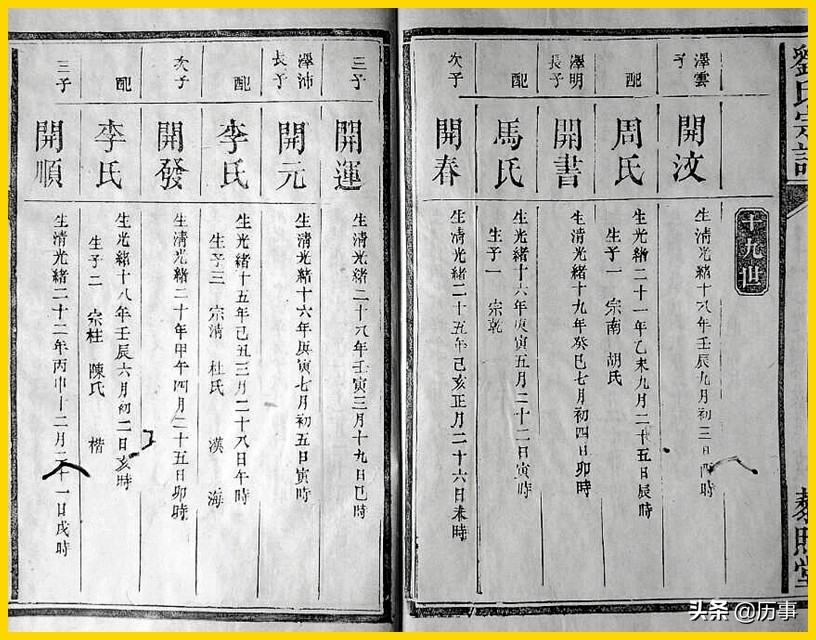 劉氏宗譜
藜照堂
十九世
澤雲
子
開汶
生清光緒十八年壬辰九月初三日酉時
配
周氏
生光緒二十一年乙未九月二十五日辰時
生子一 宗南 胡氏
澤明
長子
開書
生清光緒十九年癸巳七月初四日卯時
配
馬氏
生光緒十六年庚寅五月二十二日寅時
生子一 宗乾
次子
開春
生清光緒二十五年己亥正月二十六日未時
三子
開運
生清光緒二十八年壬寅三月十九日巳時
澤沛
長子
開元
生清光緒十六年庚寅七月初五日寅時
配
李氏
生光緒十五年己丑三月二十八日午時
生子三 宗清 杜氏 漢 海
次子
開發
生清光緒二十年甲午四月二十五日卯時
配
李氏
生光緒十八年壬辰六月初二日亥時
生子二 宗柱 陳氏 楷
三子
開順
生清光緒二十二年丙申十二月二十一日戌時
头条 @历事